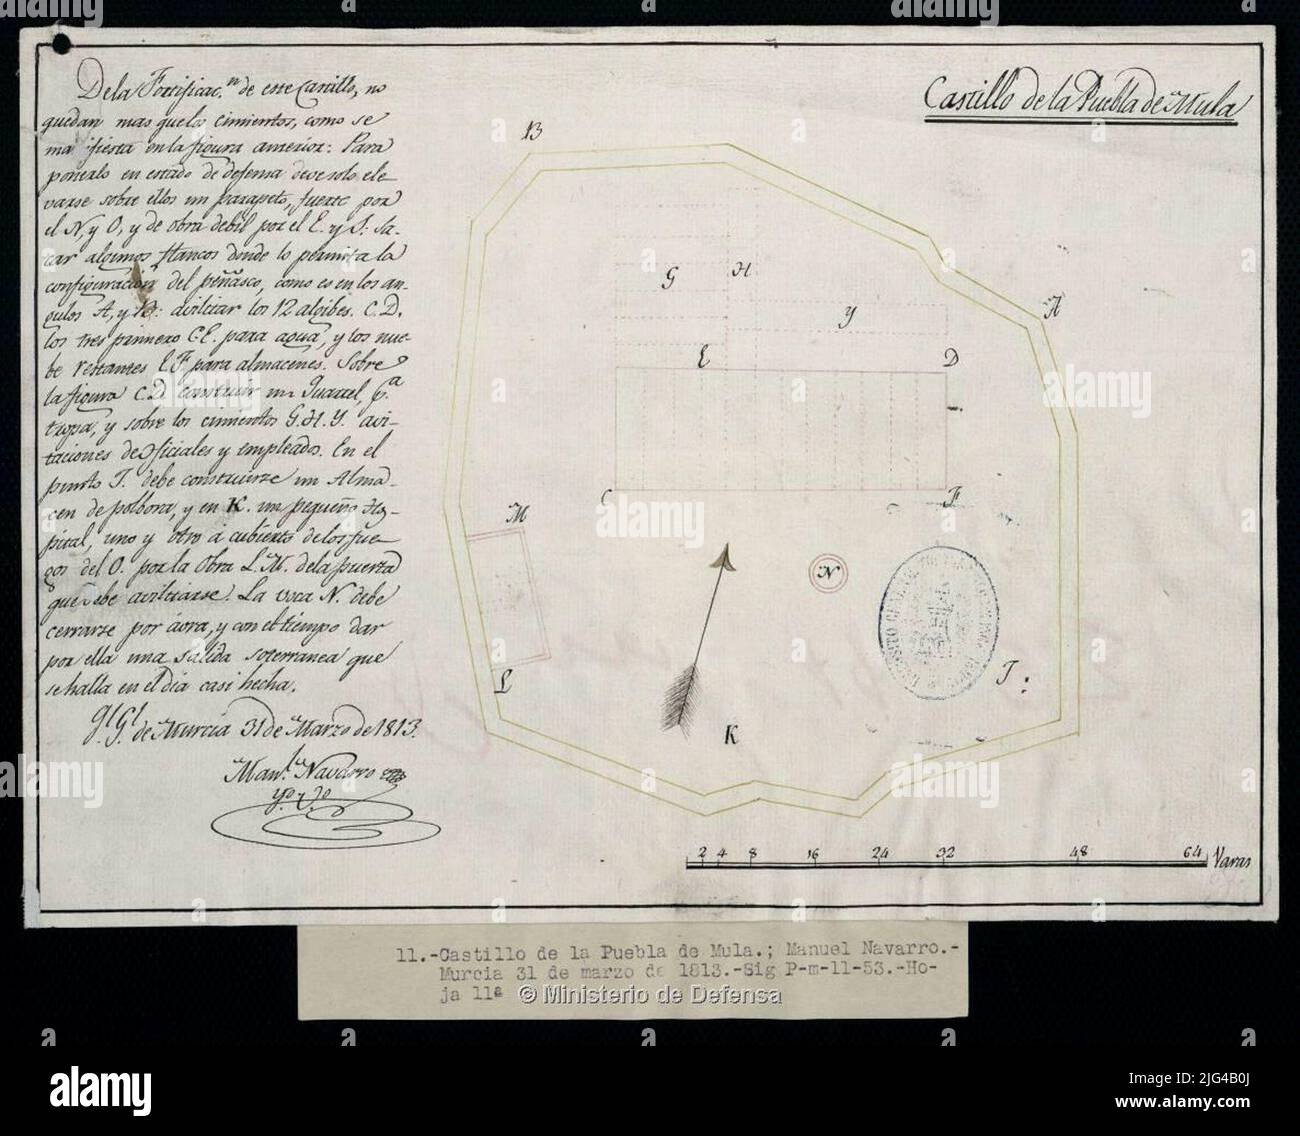 Castillo de la Puebla de Mula
De la Fortificac.n de este Castillo, no
quedan mas que los cimientos, como se
manifiesta en la figura anterior: Para
ponerlo en estado de defensa deve solo ele-
varse sobre ellos un parapeto, fuerte por
el N, y O, y de obra debil por el E. y S: sa-
car algunos flancos donde lo permita la
configuracion del peñasco, como es en los an-
gulos A, y B: avilitar los 12 algibes. C.D.
los tres primero C E. para agua, y los nue-
be restantes E F. para almacenes. Sobre
la figura C.D. construir un Quartel, p.a
tropa, y sobre los cimientos G.H.Y. avi-
taciones de oficiales y empleados. En el
punto J. debe construirse un Alma-
cen de polbora, y en K. un pequeño Hos-
pital, uno y otro á cubierto de los fue-
gos del O. por la obra L.M. de la puerta
que debe avilitarse. La voca N. debe
cerrarse por aora, y con el tiempo dar
por ella una salida soterranea que
se halla en el dia casi hecha.
Ql. Gl. de Murcia 31 de Marzo de 1813.
Man.l Navarro
B
A
G
H
Y
E
D
C
F
M
N
L
J
K
2 4 8 16 24 32 48 64 Varas
11.-Castillo de la Puebla de Mula.; Manuel Navarro.-
Murcia 31 de marzo de 1813.-Sig P-m-11-53.-Ho-
ja 11ª
© Ministerio de Defensa
alamy
Image ID: 2JG4B0J
www.alamy.com